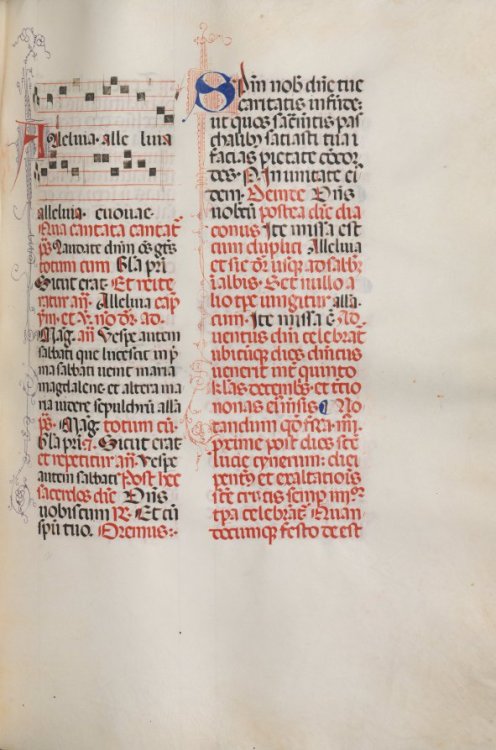 Alleluia. alle luia
alleluia. euouae.
Qua cantata cantat̄
p̄s Laudate dn̄m oē̄s gt̄s
totum cum Gl̄a pr̄i
Sicut erat. Et reite
ratur an̄. Alleluia cap̄
Mag. an̄ Vespe autem
sabbati que lucescit in p̄
ma sabbati uenit maria
magdalene et altera ma
ria uidere sepulchrū alla
p̄s. Mag. totum cū.
Gl̄a pri. Sicut erat
et repetitur an̄. Vespe
autem sabbati Post hec
sacerdos dic̄. Dn̄s
uobiscum R. Et cū
spū tuo. Oremus:-
Spm̄ nob̄ dn̄e tue
caritatis infūde:
ut quos sac̄mētis pas
chalib̄ satiasti tua
facias pietate cōcor
des. P. In unitate ei
dem. Deinde Dn̄s
uobcū postea dic̄ dia
conus Ite missa est
cum duplici Alleluia
et sic dr̄ usq̄ ad sabb̄
ī albis. Et nullo a
lio tp̄e iungitur alla
cum. Ite missa ē. Ad
uentus dn̄i celebrat̄
ubicūq̄ dies dn̄icus
uenerit int̄ quinto
kl̄as decembr̄ et t̄tio
nonas eiusdē. No
tandum q̄ fr̄a. iiij.
prime post dies sc̄te
lucie cynerum: diei
pentec̄ et exaltatiōis
sc̄te crucis semp̄ iiijᵒʳ
tp̄a celebrat̄. Quan
documq̄ festo de est